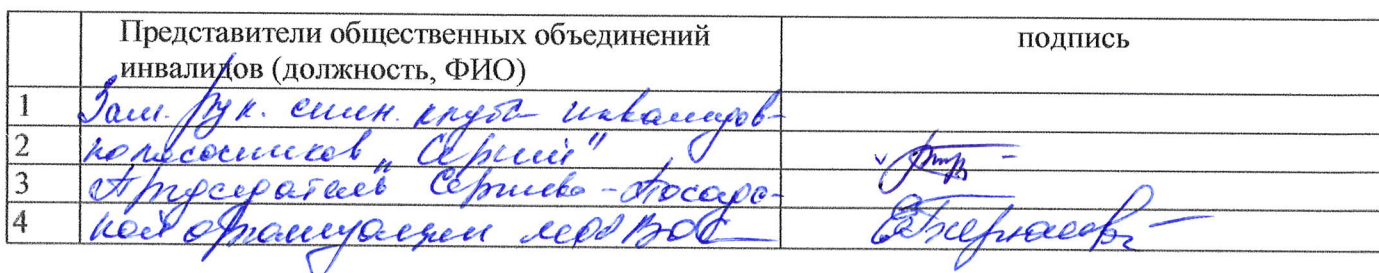 Представители общественных объединений подпись
инвалидов (должность, ФИО)
1 Зам. рук. клуба инвалидов-
2 колясочников "Сергий"
3 Председатель Сергиево-Посадс-
4 кой организации МОО ВОС